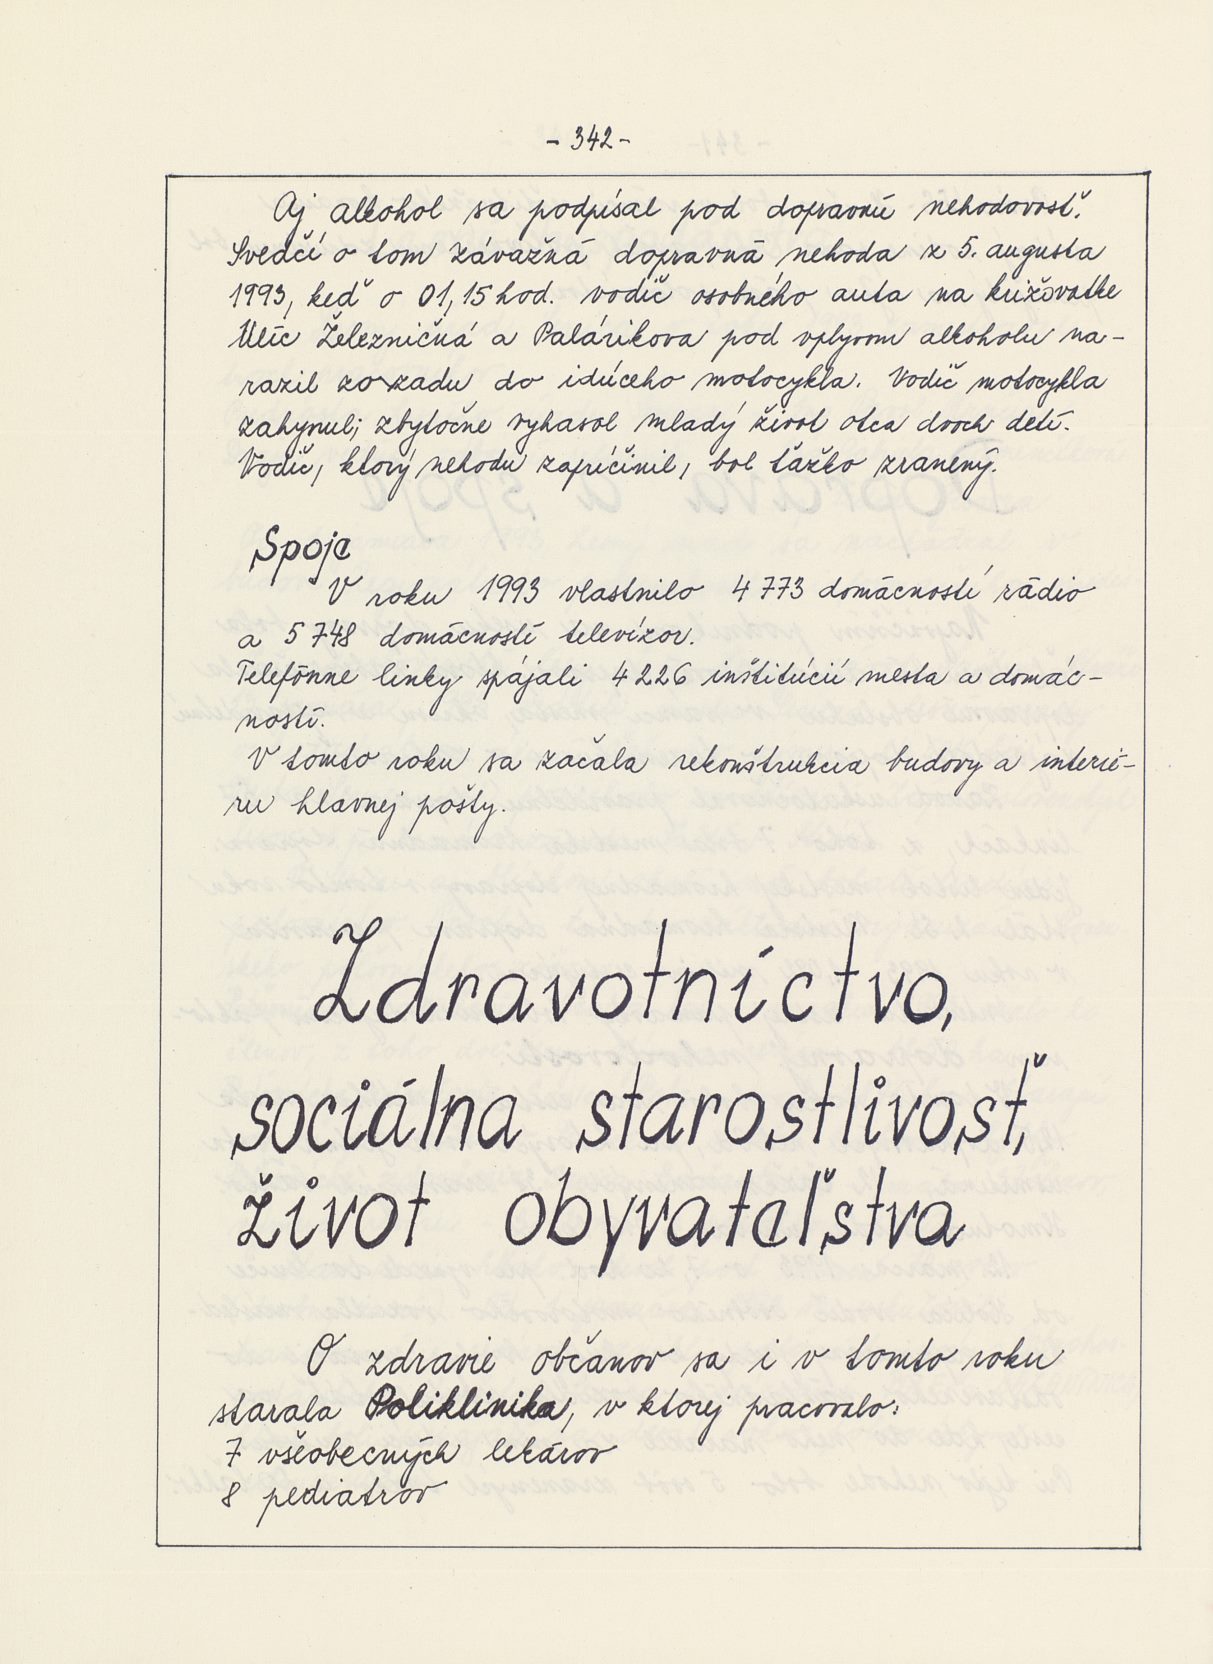 - 342 -
Aj alkohol sa podpísal pod dopravnú nehodovosť.
Svedčí o tom závažná dopravná nehoda z 5. augusta
1993, keď o 01,15 hod. vodič osobného auta na križovatke
Ulíc Železničná a Palárikova pod vplyvom alkoholu na-
razil zozadu do idúceho motocykla. Vodič motocykla
zahynul; zbytočne vyhasol mladý život otca dvoch detí.
Vodič, ktorý nehodu zapríčinil, bol ťažko zranený.
Spoje
V roku 1993 vlastnilo 4 773 domácností rádio
a 5 748 domácností televízor.
Telefónne linky spájali 4 226 inštitúcií mesta a domác-
ností.
V tomto roku sa začala rekonštrukcia budovy a interié-
ru hlavnej pošty.
Zdravotníctvo,
sociálna starostlivosť,
život obyvateľstva
O zdravie občanov sa i v tomto roku
starala Poliklinika, v ktorej pracovalo:
7 všeobecných lekárov
8 pediatrov